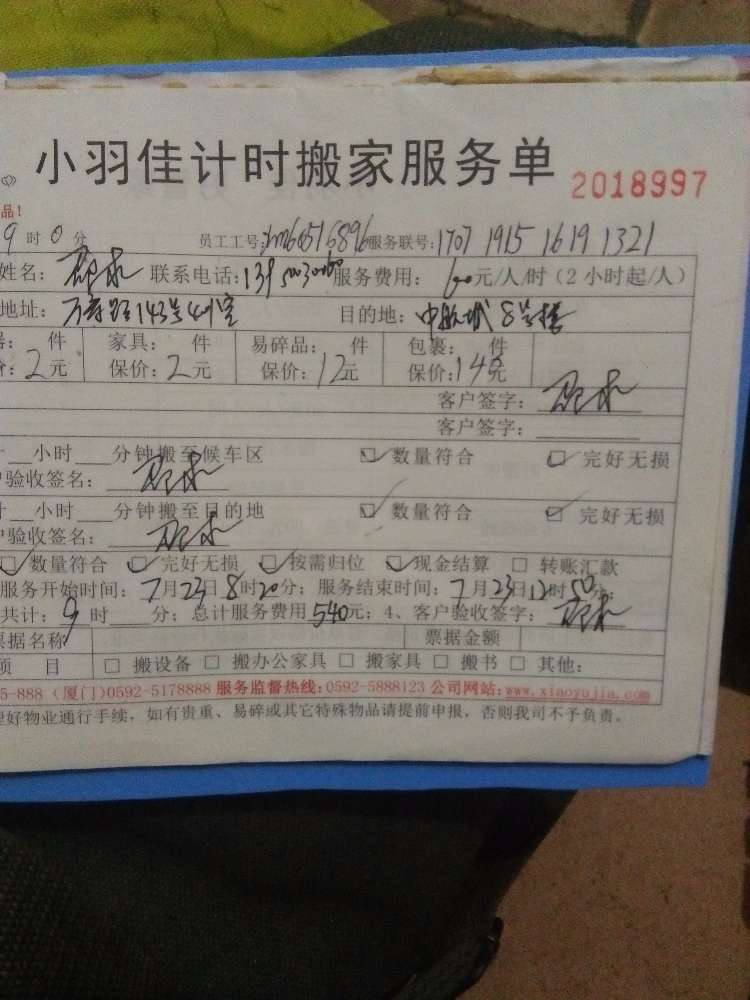 小羽佳计时搬家服务单 2018997
品!
9时0分 员工工号: 服务联号:1707 1915 1619 1321
姓名: 联系电话:139 服务费用:60元/人/时(2小时起/人)
地址:万寿路143号401室 目的地:中航城8号楼
件 家具: 件 易碎品: 件 包裹: 件
2元 保价:2元 保价:12元 保价:14元
客户签字:
客户签字:
小时 分钟搬至候车区 数量符合 完好无损
户验收签名:
小时 分钟搬至目的地 数量符合 完好无损
户验收签名:
数量符合 完好无损 按需归位 现金结算 转账汇款
服务开始时间:7月23日8时20分;服务结束时间:7月23日12时50分
共计:9时 分;总计服务费用540元;4、客户验收签字:
票据名称 票据金额
项目 搬设备 搬办公家具 搬家具 搬书 其他:
5-888(厦门)0592-5178888 服务监督热线:0592-5888123 公司网站:www.xiaoyujia.com
理好物业通行手续,如有贵重、易碎或其它特殊物品请提前申报,否则我司不予负责。